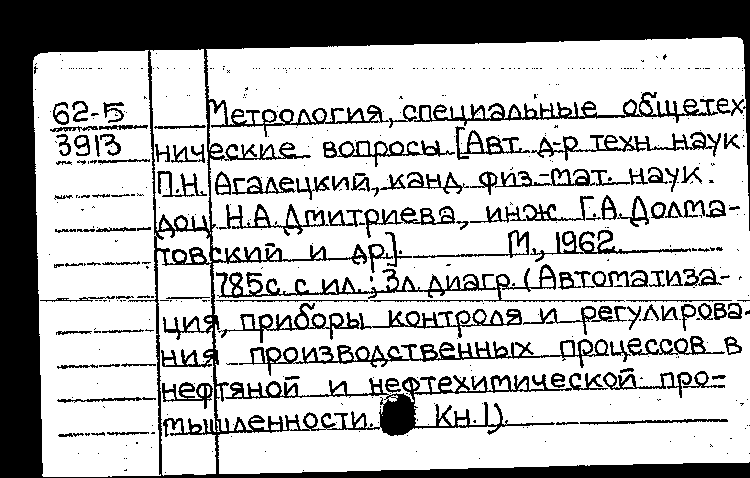 62-5 Метрология, специальные общетех
3913 нические вопросы. [Авт. д-р техн. наук
П.Н. Агалецкий, канд. физ.-мат. наук.
доц. Н.А. Дмитриева, инж. Г.А. Долма-
товский и др.]. М., 1962.
785с. с ил.; 3л. диагр. (Автоматиза-
ция, приборы контроля и регулирова-
ния производственных процессов в
нефтяной и нефтехимической про-
мышленности. Кн. 1).